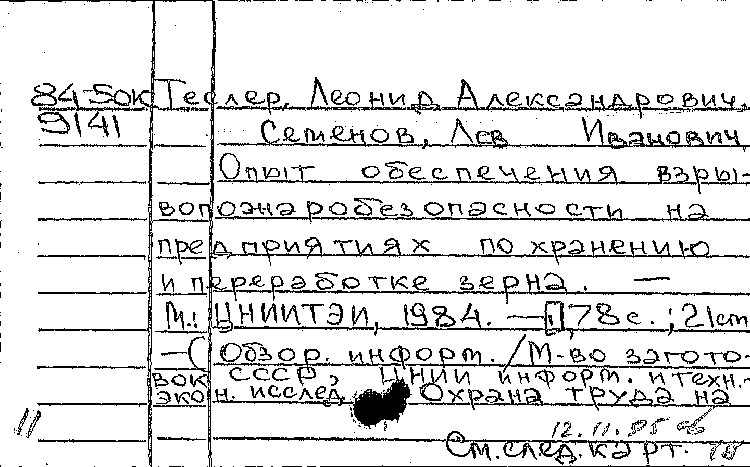 84-5ок Теслер, Леонид Александрович,
9141 Семенов, Лев Иванович
Опыт обеспечения взры-
вопожаробезопасности на
предприятиях по хранению
и переработке зерна. —
М.: ЦНИИТЭИ, 1984. — 78 с.; 21 cm
— ( Обзор. информ. / М-во загото-
вок СССР, ЦНИИ информ. и техн.-
экон. исслед. Охрана труда на
11 12.11.85
См. след. карт.